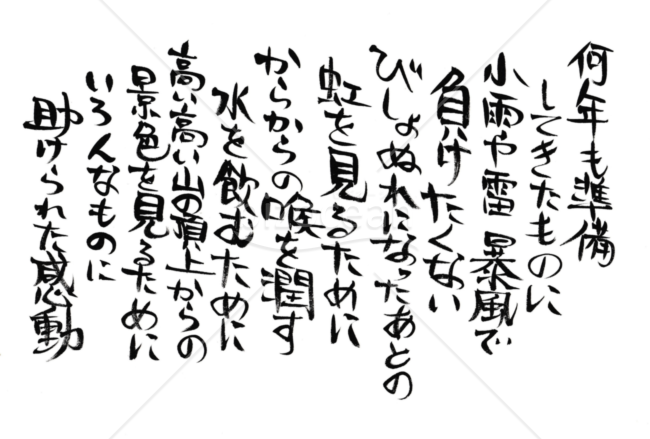 何年も準備
してきたものに
小雨や雷 暴風で
負けたくない
びしょぬれになったあとの
虹を見るために
からからの喉を潤す
水を飲むために
高い高い山の頂上からの
景色を見るために
いろんなものに
助けられた感動